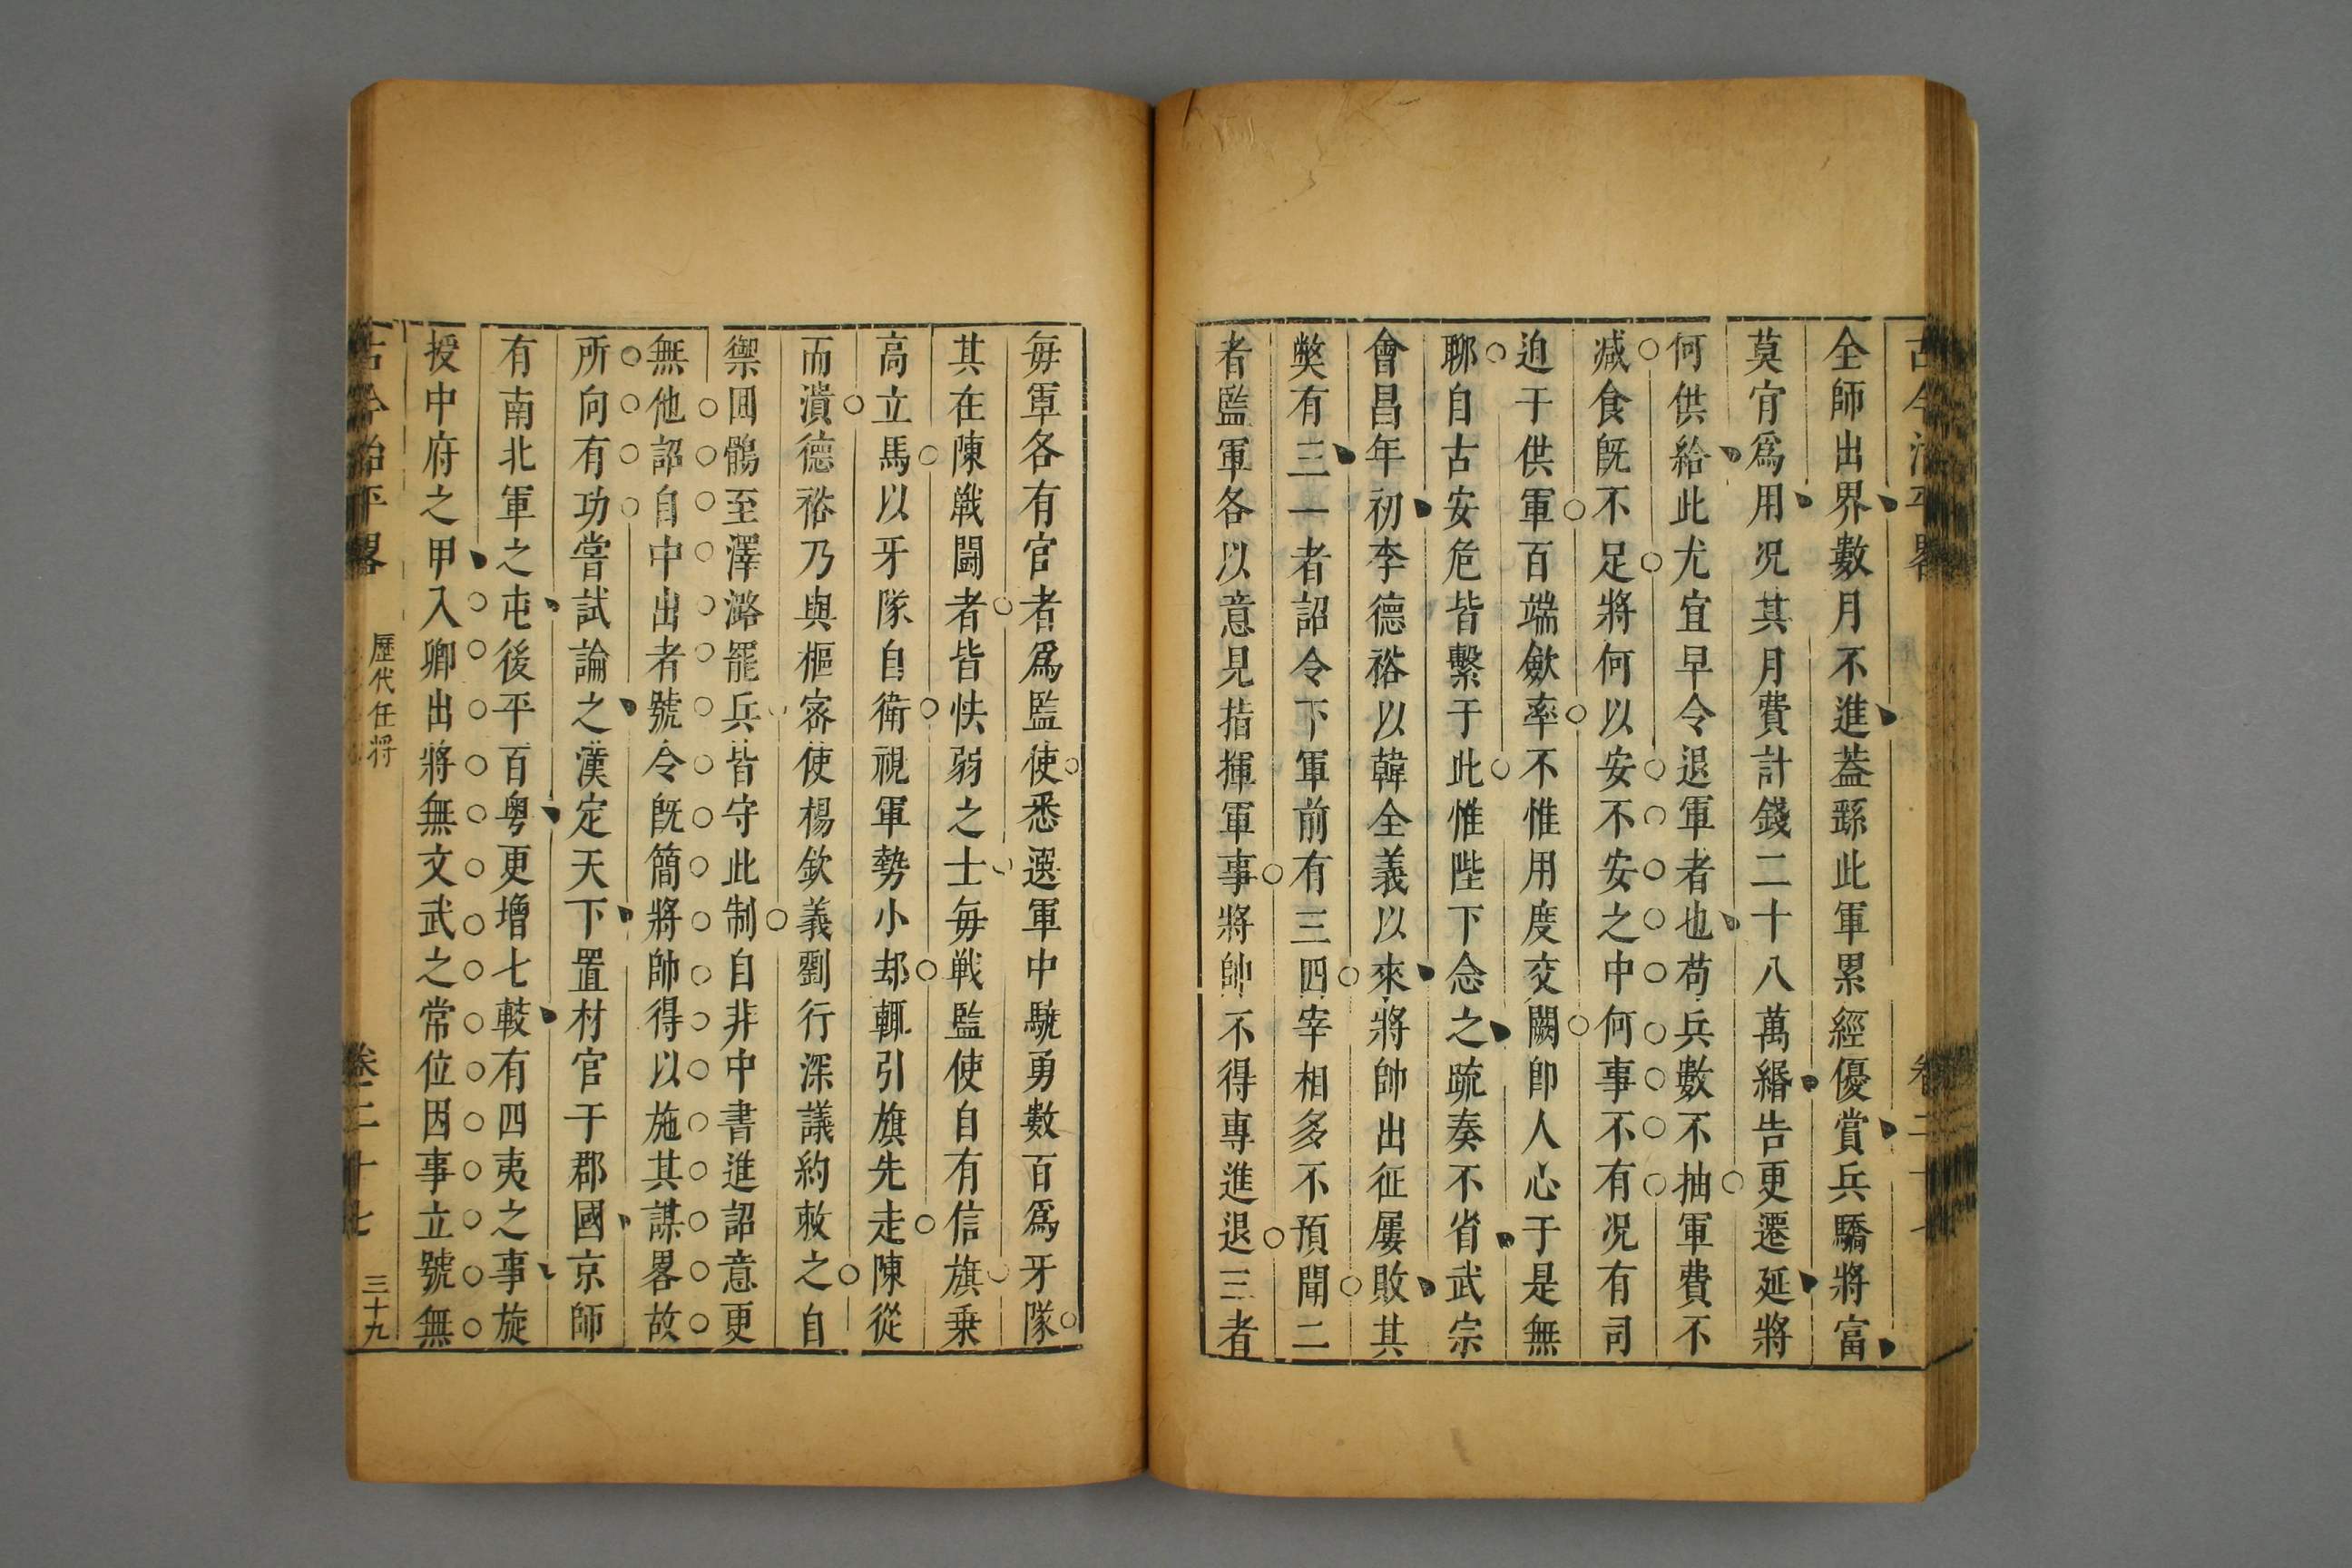 古今治平畧 卷二十七
全師出界數月不進葢繇此軍累經優賞兵驕將富
莫肯爲用况其月費計錢二十八萬緡告更遷延將
何供給此尤宜早令退軍者也苟兵數不抽軍費不
减食旣不足將何以安不安之中何事不有况有司
迫于供軍百端歛率不惟用度交闕卽人心于是無
聊自古安危皆繫于此惟陛下念之疏奏不省武宗
會昌年初李德裕以韓全義以來將帥出征屢敗其
獘有三一者詔令下軍前有三四宰相多不預聞二
者監軍各以意見指揮軍事將帥不得專進退三者
每軍各有官者爲監使悉選軍中驍勇數百爲牙隊
其在陳戰鬪者皆怯弱之士每戦監使自有信旗乗
高立馬以牙隊自衛視軍勢小却輒引旗先走陳從
而潰德裕乃與樞密使楊欽義劉行深議約敕之自
禦囘鶻至澤潞罷兵皆守此制自非中書進詔意更
無他詔自中出者號令旣簡將帥得以施其謀畧故
所向有功嘗試論之漢定天下置材官于郡國京師
有南北軍之屯後平百粤更增七䡈有四夷之事旋
授中府之甲入卿出將無文武之常位因事立號無
古今治平畧 歷代任將 卷二十七 三十九